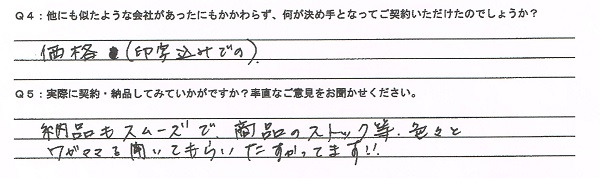 Q4：他にも似たような会社があったにもかかわらず、何が決め手となってご契約いただけたのでしょうか？
価格 (印字込みでの)
Q5：実際に契約・納品してみていかがですか？率直なご意見をお聞かせください。
納品もスムーズで、商品のストック等、色々と
ワガママを聞いてもらいたすかってます!!